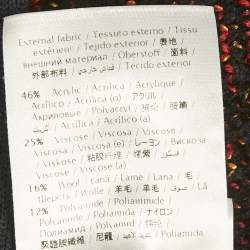 External fabric / Tessuto esterno / Tissu
extérieur / Tejido exterior / 表地 /
внешний материал / Oberstoff / 面料 /
外部布料 / قماش خارجي / Tecido exterior
46% Acrylic / Acrilica / Acrylique /
Acrílico / Acrílica (o) / アクリル /
Акриловые / Polyacryl / 腈纶 /
Acrílico / Acrilica (o)
25% Viscose / Viscosa / Viscose /
Viscosa / Viscosa (e) / レーヨン / Вискоза
/ Viskose / 粘胶纤维 / / Viscose /
Viscosa (e)
16% Wool / Lana / Laine / Lana / 毛 /
Шерсть / Wolle / 羊毛 / 羊毛 / صوف / Lã
12% Polyamide / Poliammide /
Polyamide / Poliamida / ナイロン /
Полиамид / Polyamid / 锦纶 /
聚醯胺纖維 / 尼龍 /